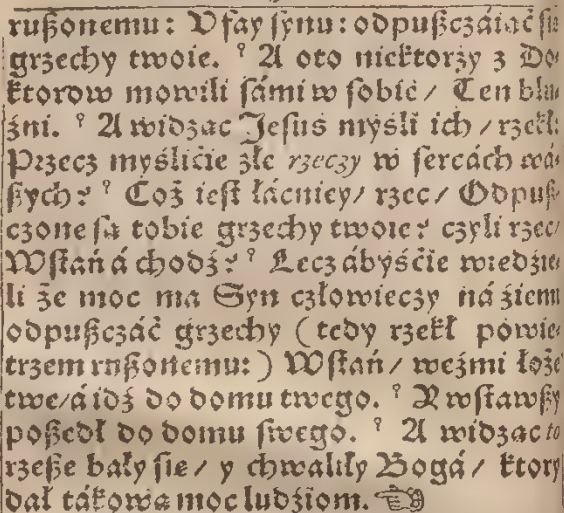 rußonemu: Ufay synu: odpußczáiąć się
grzechy twoie. ⁹ A oto niektorży z Do-
ktorow mowili sámi w sobie / Ten blu-
źni. ⁹ A widząc Jesus myśli ich / rzekł:
Przecz myślicie złe rzeczy w sercách wá-
ßych? ⁹ Coż iest łácniey / rzec / Odpuß-
czone są tobie grzechy twoie? czyli rzec /
Wstań á chodź? ⁹ Lecz ábyście wiedzie-
li że moc ma Syn człowieczy ná źiemi
odpußczáć grzechy (tedy rzekł powie-
trzem rußonemu:) Wstań / weźmi łoże
twe / á idź do domu twego. ⁹ Y wstawßy
poßedł do domu swego. ⁹ A widząc to
rzeße bały się / y chwaliły Bogá / ktory
dał tákową moc ludźiom. ☜